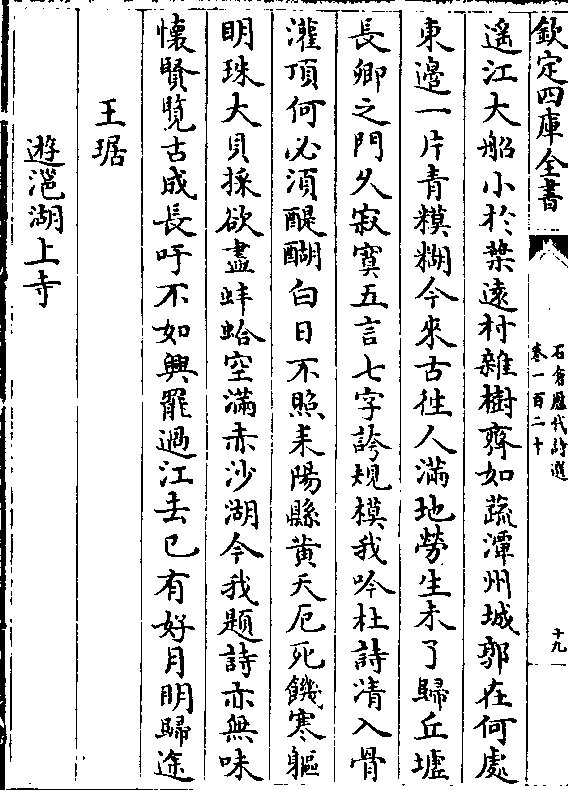 欽定四庫全書
石倉歷代詩選
卷一百二十
十九
遥江大船小於葉遠村雜樹齊如蔬潭州城郭在何處
東邊一片青糢糊今來古徃人滿地勞生未了歸丘墟
長卿之門久寂寞五言七字誇規模我吟杜詩清入骨
灌頂何必湏醍醐白日不照耒陽縣黄天厄死饑寒軀
明珠大貝採欲盡蚌蛤空滿赤沙湖今我題詩亦無味
懐賢覽古成長吁不如興罷過江去已有好月明歸途
王琚
遊灉湖上寺